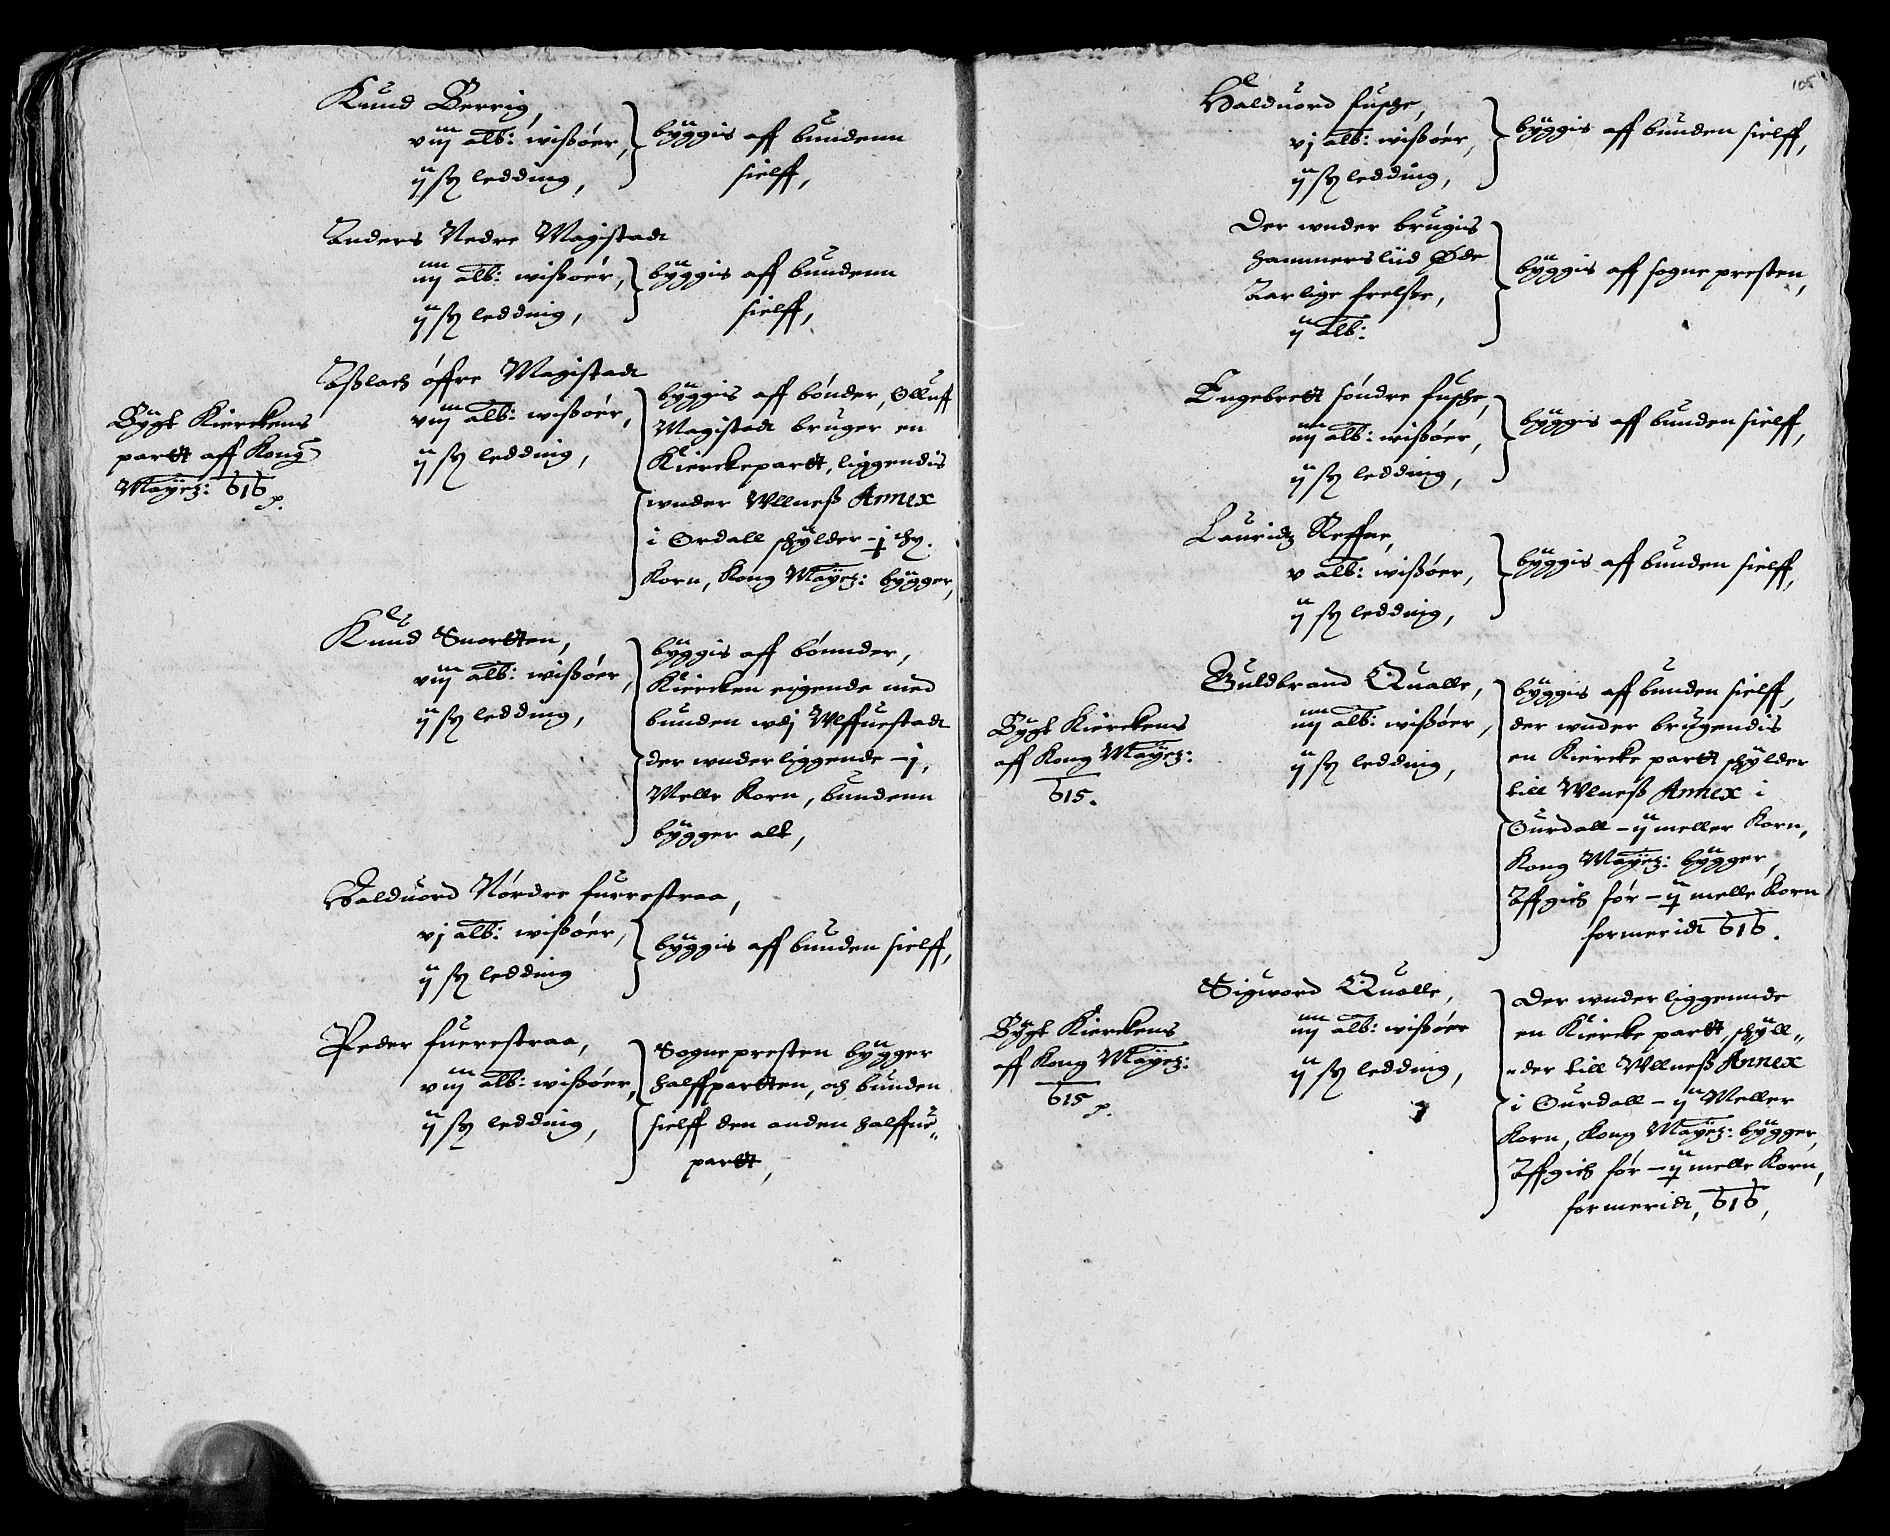 Knud Berrig,
viij alb: wissøer,
ij sz ledding,
byggis aff bundenn
sielff,
Anders Nedre Magistadt
iiij alb: wissøer,
ij sz ledding,
byggis aff bundenn
sielff,
Asslach øffre Magistadt
viij alb: wissøer,
ij sz ledding,
byggis aff bønder, Olluff
Magistadt bruger en
Kierckepartt, liggendis
wnder Wllness Annex
i Ordall schylder
Korn, Kong Maÿtz: bygger,
Bygt Kierckens
partt aff Kong
Maÿtz: 616
Knud Snortten,
viij alb: wissøer,
ij sz ledding,
byggis aff bønnder,
Kiercken eigende med
bunden wdj Wlffuestadt
der wnder liggende – j,
Melle Korn, bundenn
bygger alt,
Halduord Nørdre fuerestraa,
vj alb: wissøer,
ij sz ledding
byggis aff bunden sielff,
Peder fuerestraa,
viij alb: wissøer,
ij sz ledding,
Sognepresten bygger
halffpartten, och bunden
sielff den anden halffue
partt,
105
Halduord fusche,
vj alb: wissøer,
ij sz ledding,
byggis aff bunden sielff,
Der wnder brugis
hammerslid Øde
Aarlige frelsse,
ij alb:
byggis aff sogne presten,
Engebrett søndre fusche,
iiij alb: wissøer,
ij sz ledding,
byggis aff bunden sielff,
Lauridz Reffne,
v alb: wissøer,
ij sz ledding,
byggis aff bunden sielff,
Guldbrand Qualle,
iiij alb: wissøer,
ij sz ledding,
byggis aff bunden sielff,
der wnder brugendis
en Kiercke partt schylder
till Wlness Annex i
Ourdall – ij meller Korn,
Kong Maÿtz: bygger,
Affgich før – ij melle Korn
formeridt 616.
Bygt Kierckens
aff Kong Maÿtz:
615.
Sigword Qualle,
iiij alb: wissøer
ij sz ledding,
Der wnder liggennde
en Kiercke partt, schyll„
„der till Wllness Annex
i Ourdall – ij Meller
Korn, Kong Maÿtz: bygger,
Affgich før – ij melle Korn,
formeridt, 616,
Bygt Kierckens
aff Kong Maÿtz:
615